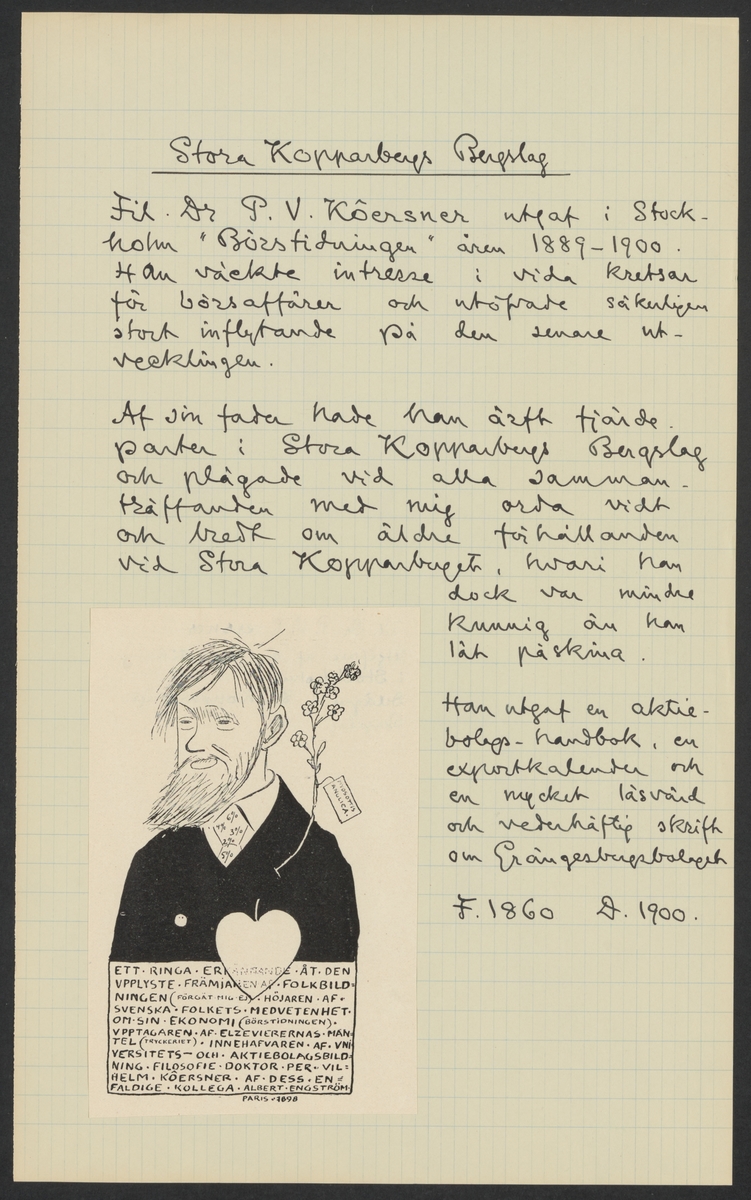 Stora Kopparbergs Bergslag
Fil. Dr P. V. Köersner utgaf i Stock-
holm "Börstidningen" åren 1889-1900.
Han väckte intresse i vida kretsar
för börsaffärer och utöfvade säkerligen
stort inflytande på den senare ut-
vecklingen.
Af sin fader hade han ärft fjärde.
parter i Stora Kopparbergs Bergslag
och plägade vid alla samman-
träffanden med mig orda vidt
och bredt om äldre förhållanden
vid Stora Kopparberget, hvari han
dock var mindre
kunnig än han
lät påskina.
Han utgaf en aktie-
bolags-handbok, en
exportkalender och
en mycket läsvärd
och vederhäftig skrift
om Grängesbergsbolaget
F. 1860 D. 1900.
6%
4% 3%
2%
5%
MYOSOTIS
ANGLICA.
ETT · RINGA · ERKÄNNANDE · ÅT · DEN
VPPLYSTE · FRÄMJAREN AF · FOLKBILD=
NINGEN (FÖRGÄT · MIG · EJ) · HÖJAREN · AF ·
SVENSKA · FOLKETS · MEDVETENHET ·
OM · SIN · EKONOMI (BÖRSTIDNINGEN) ·
VPPTAGAREN · AF · ELZEVIERERNAS · MAN=
TEL (TRYCKERIET) · INNEHAFVAREN · AF · VNI
VERSITETS- OCH · AKTIEBOLAGSBILD=
NING · FILOSOFIE · DOKTOR · PER · VIL=
HELM · KÖERSNER · AF · DESS · EN=
FALDIGE · KOLLEGA · ALBERT · ENGSTRÖM
PARIS · 1898